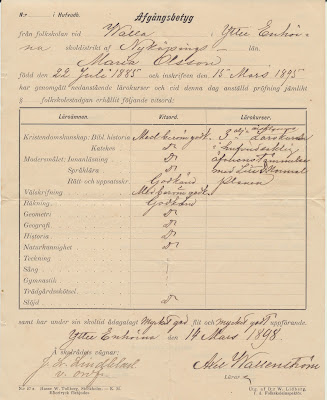 N:r i Hufvudb.
Afgångsbetyg
från folkskolan vid Walla i Yttre Enhör-
na skoldistrikt af Nyköpings län.
Maria Olsson
född den 22 Juli 1885 och inskrifven den 15 Mars 1895
har genomgått nedanstående lärokurser och vid denna dag anställd pröfning jämlikt
§ folkskolestadgan erhållit följande vitsord:
Läroämnen. Vitsord. Lärokurser.
Kristendomskunskap: Bibl. historia Med beröm godk.
Katekes d:o
Modersmålet: Innanläsning d:o
Språklära d:o
Rätt- och uppsatsskr. Godkänd
Välskrifning Med beröm godk.
Räkning Godkänd
Geometri d:o
Geografi d:o
Historia d:o
Naturkunnighet d:o
Teckning
Sång
Gymnastik
Trädgårdsskötsel
Slöjd d:o
samt har under sin skoltid ådagalagt Mycket god flit och Mycket godt uppförande.
Yttre Enhörna den 17 Mars 1898.
Å skolrådets vägnar:
J. A. Lindblad
v. ordf.
Axel Wallenström
Lärar